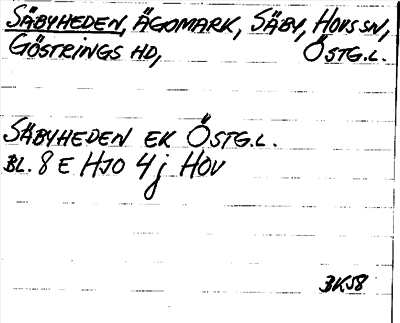 SÄBYHEDEN, ÄGOMARK, SÄBY, HOVS SN,
GÖSTRINGS HD, ÖSTG.L.
SÄBYHEDEN EK ÖSTG.L.
BL. 8 E HJO 4 j HOV
BK58